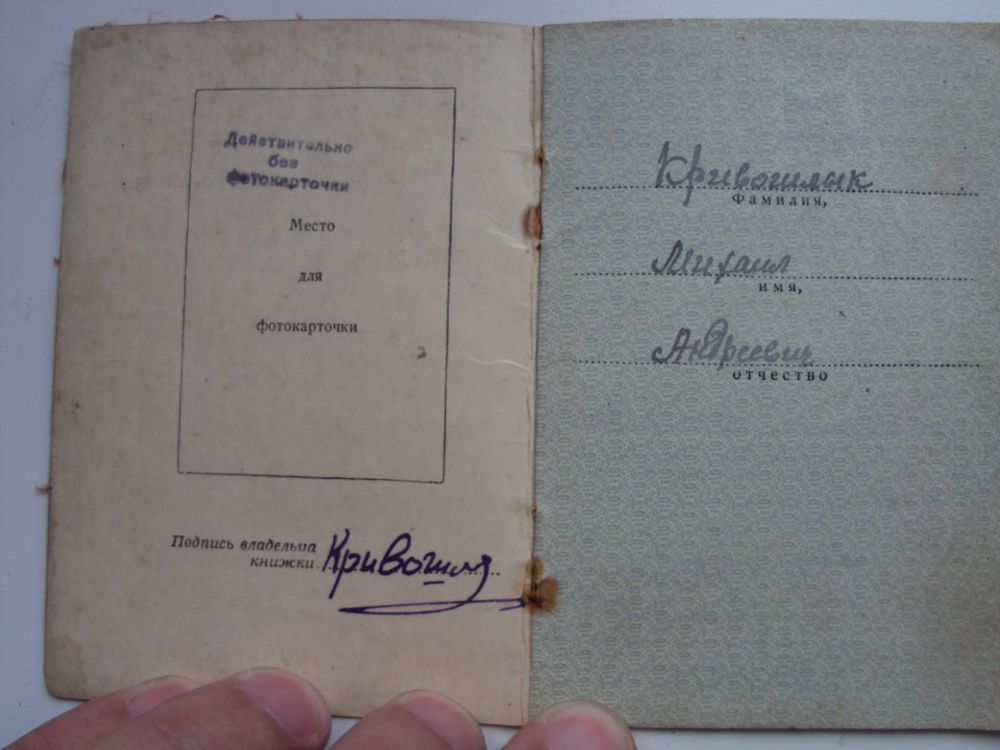 Действительно
без
фотокарточки
Место
для
фотокарточки
Подпись владельца
книжки
Кривошлык
фамилия,
Михаил
имя,
Андреевич
отчество